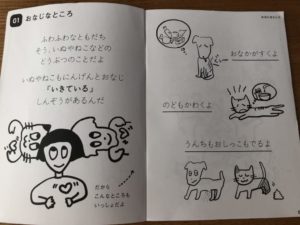 01 おなじなところ
ふわふわなともだち
そう、いぬやねこなどの
どうぶつのことだよ
いぬやねこもにんげんとおなじ
「いきている」
しんぞうがあるんだ
だから
こんなところも
いっしょだよ
おなかがすくよ
のどもかわくよ
うんちもおしっこもでるよ